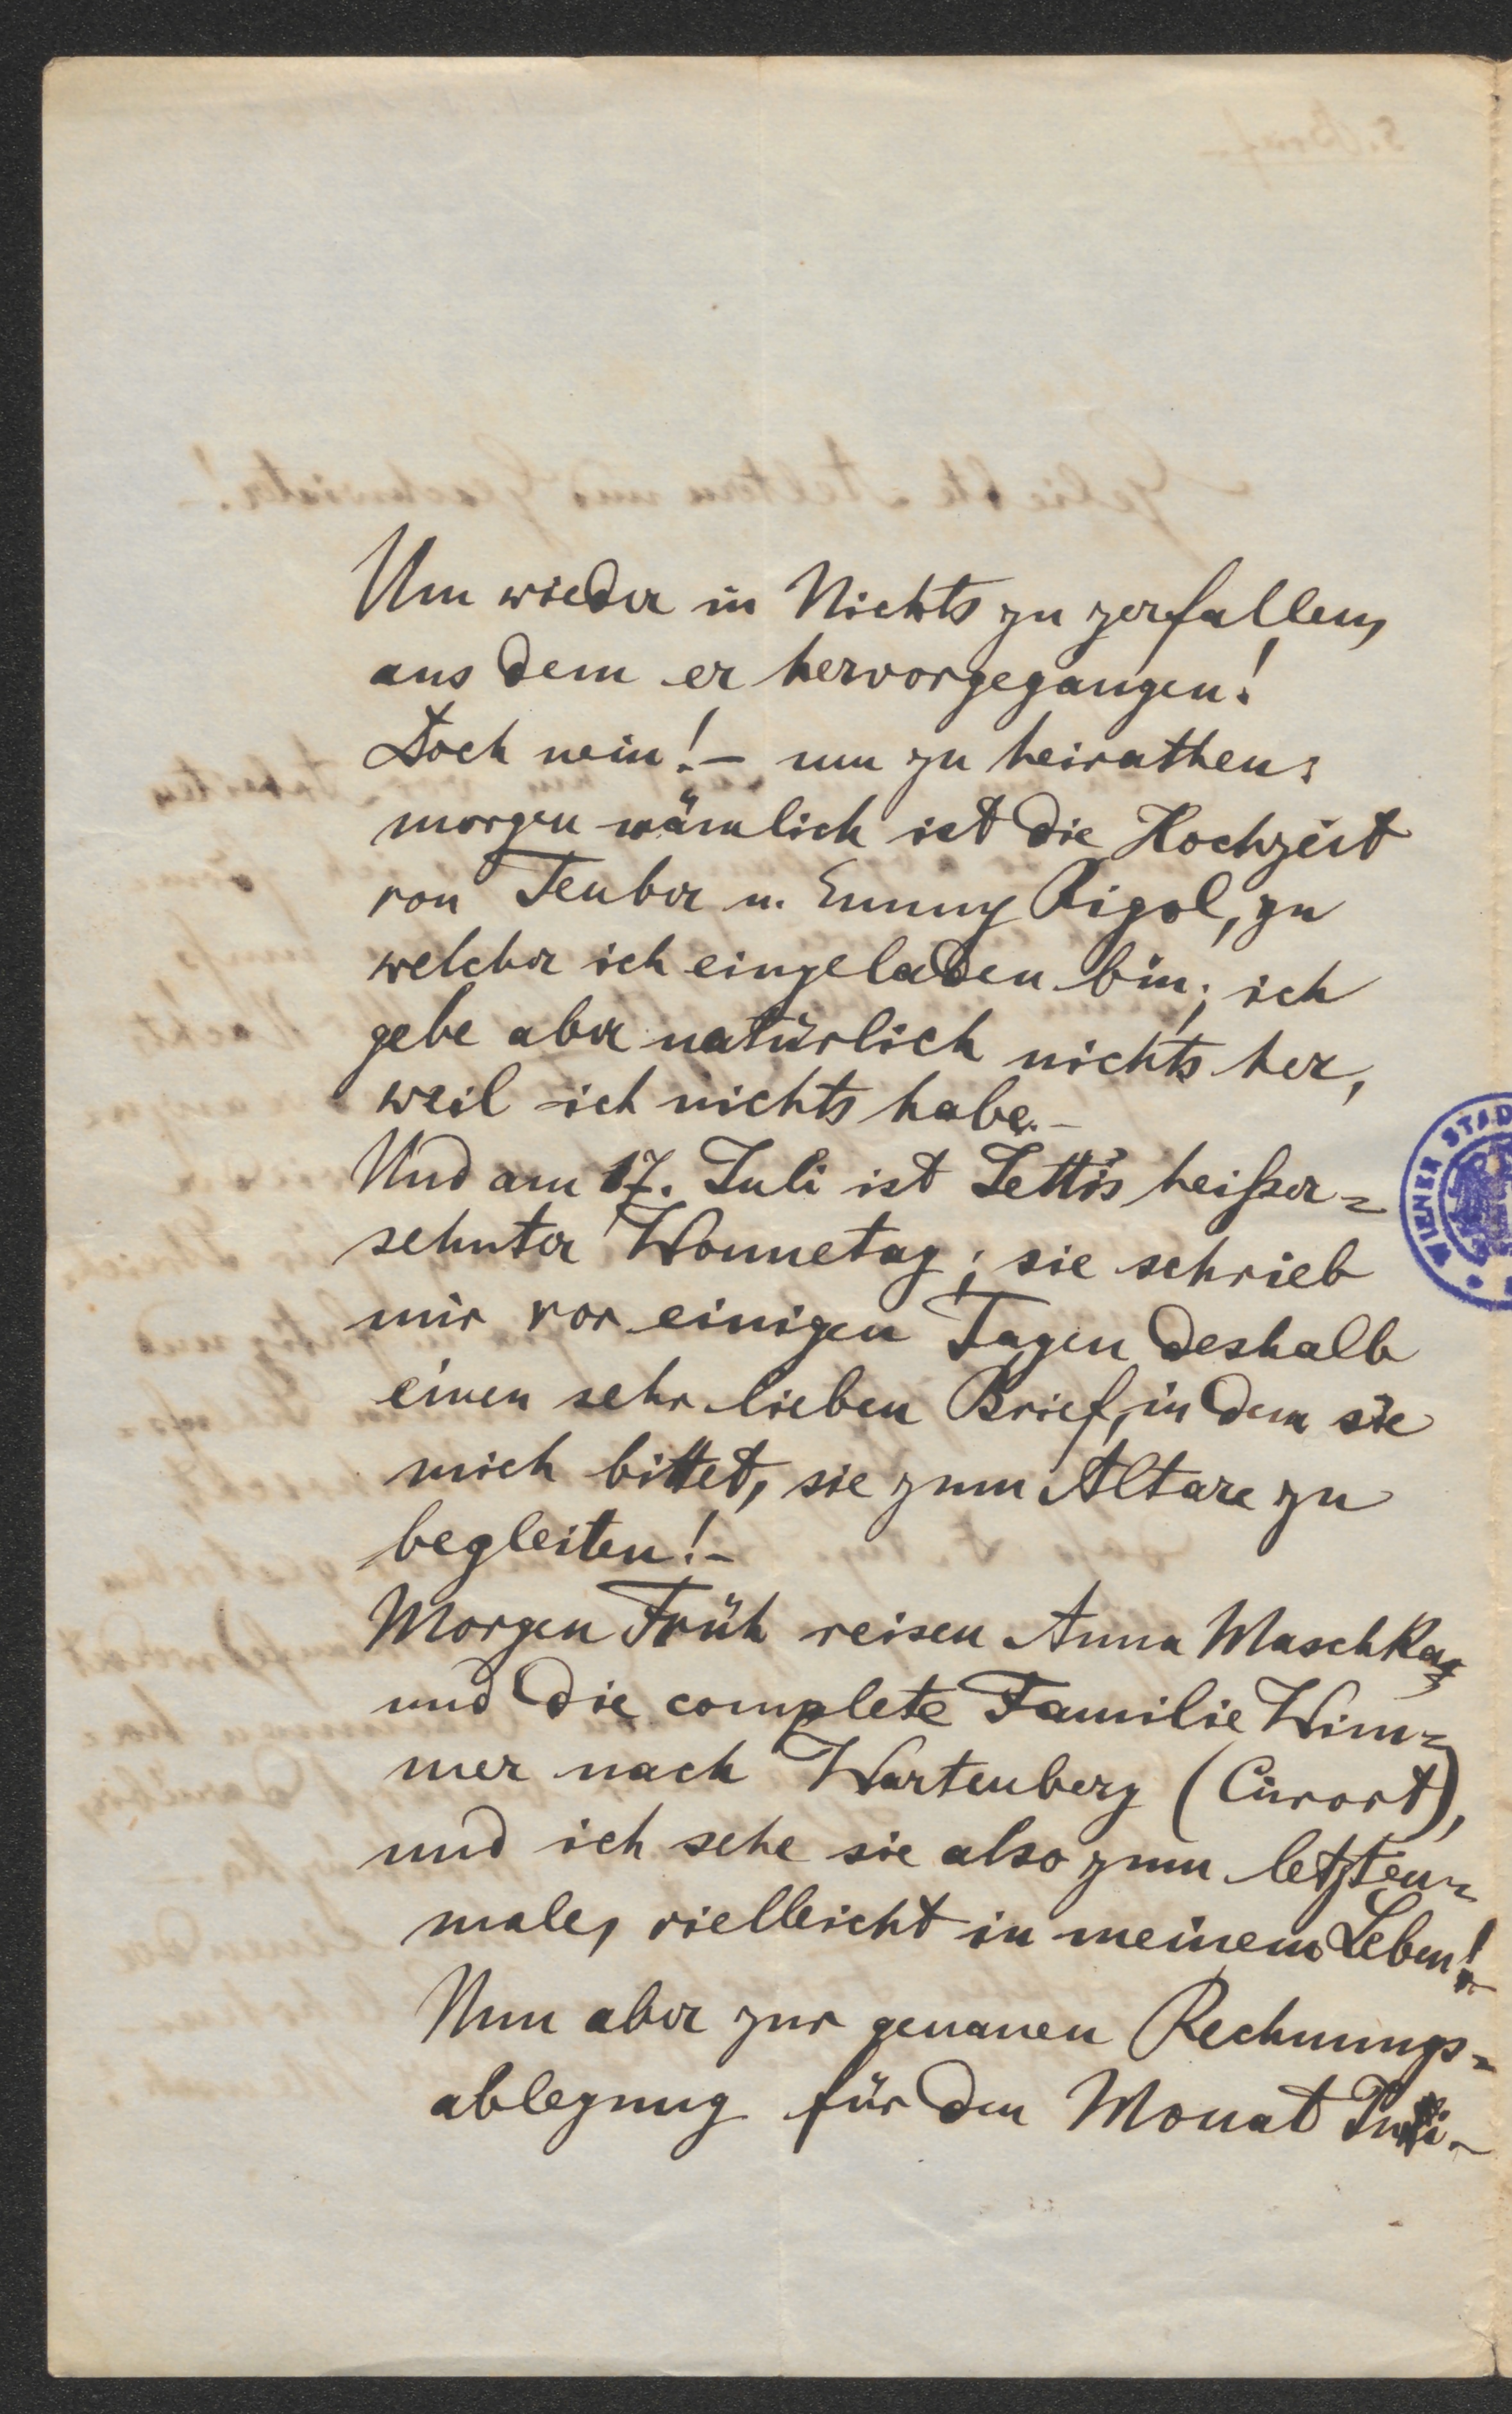 Um wieder in Nichts zu zerfallen,
aus dem er hervorgegangen!
Doch nein! – um zu heirathen;
morgen nämlich ist die Hochzeit
von Teuber u. Emmy Rigol, zu
welcher ich eingeladen bin; ich
gebe aber natürlich nichts her,
weil ich nichts habe. –
Und am 17. Juli ist Letti's heißer=
sehnter Wonnetag; sie schrieb
mir vor einigen Tagen deshalb
einen sehr lieben Brief, in dem sie
mich bittet, sie zum Altare zu
begleiten! –
Morgen Früh reisen Anna Maschka
und die complete Familie Wim=
mer nach Wartenberg (Curort),
und ich sehe sie also zum letzten=
male, vielleicht in meinem Leben! –
Nun aber zur genauen Rechnungs=
ablegung für den Monat
WIENER STAD